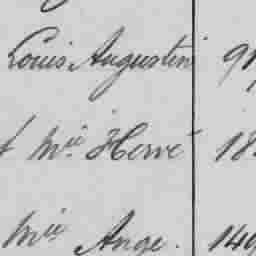 Louis Augustin 9
t Mie Hervé 18
Mie Ange. 149